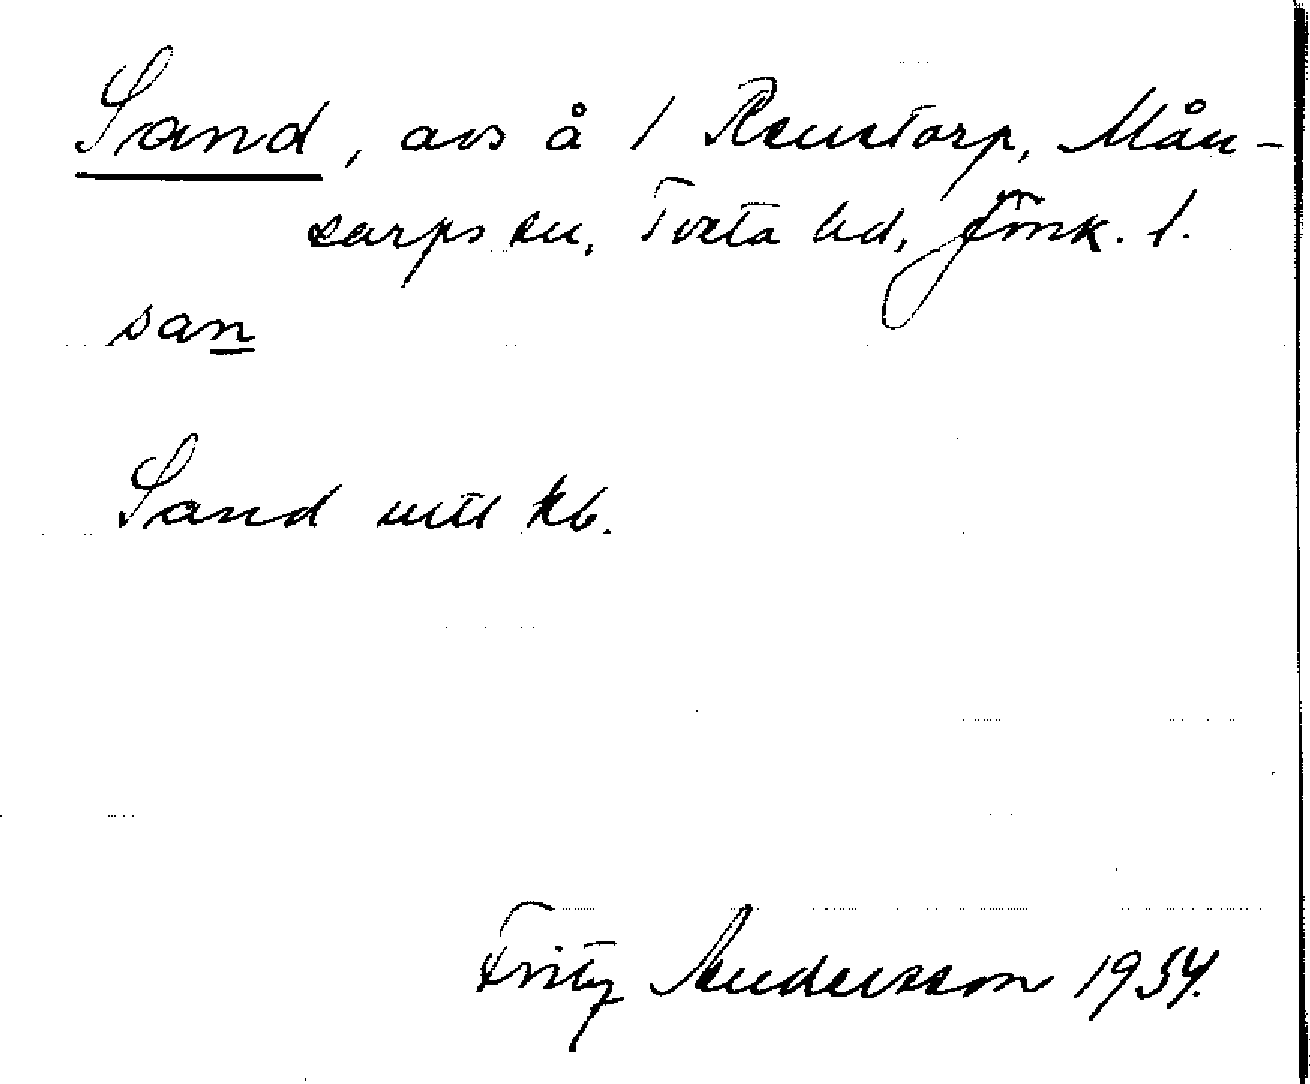 Sand, avs å 1 Renstorp, Mån-
sarps sn, Tveta hd, Jönk. l.
san
Sand kb.
Fritz Andersson